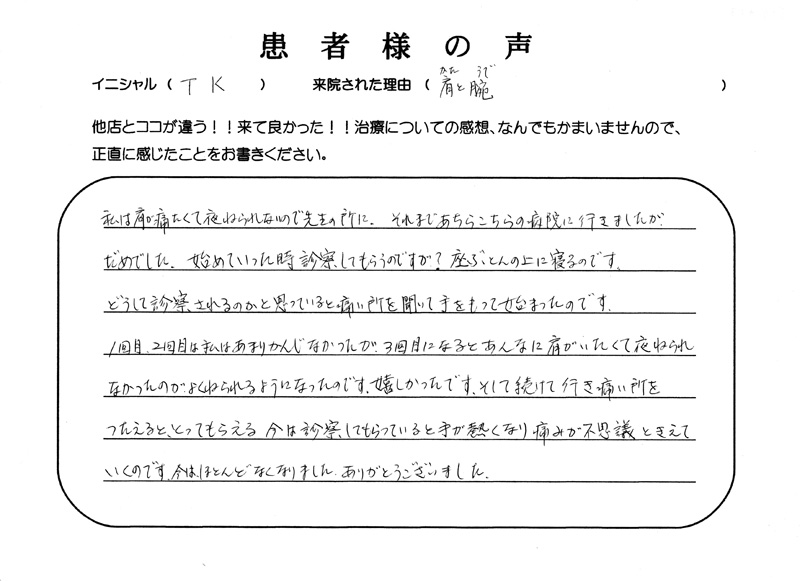 患者様の声
イニシャル（ＴＫ） 来院された理由（肩と腕）
かた うで
他店とココが違う！！来て良かった！！治療についての感想、なんでもかまいませんので、
正直に感じたことをお書きください。
私は肩が痛たくて夜ねられないので先生の所に、それまであちらこちらの病院に行きましたが
だめでした。始めていった時診察してもらうのですが？座ぶとんの上に寝るのです。
どうして診察されるのかと思っていると痛い所を聞いて手をもって始まったのです。
1回目、2回目は私はあまりかんじなかったが、3回目になるとあんなに肩がいたくて夜ねられ
なかったのが、よくねられるようになったのです、嬉しかったです、そして続けて行き痛い所を
つたえると、とってもらえる 今は診察してもらっていると手が熱くなり痛みが不思議ときえて
いくのです、今は、ほとんどなくなりました、ありがとうございました。